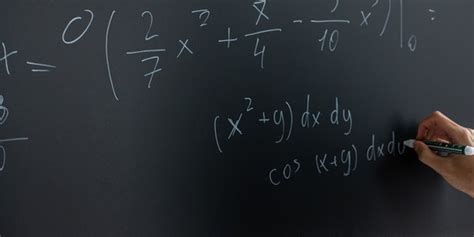 x = 0 ( 2/7 x² + x/4 - 3/10 x² ) |₀ =
(x² + y) dx dy
cos (x+y) dx dy